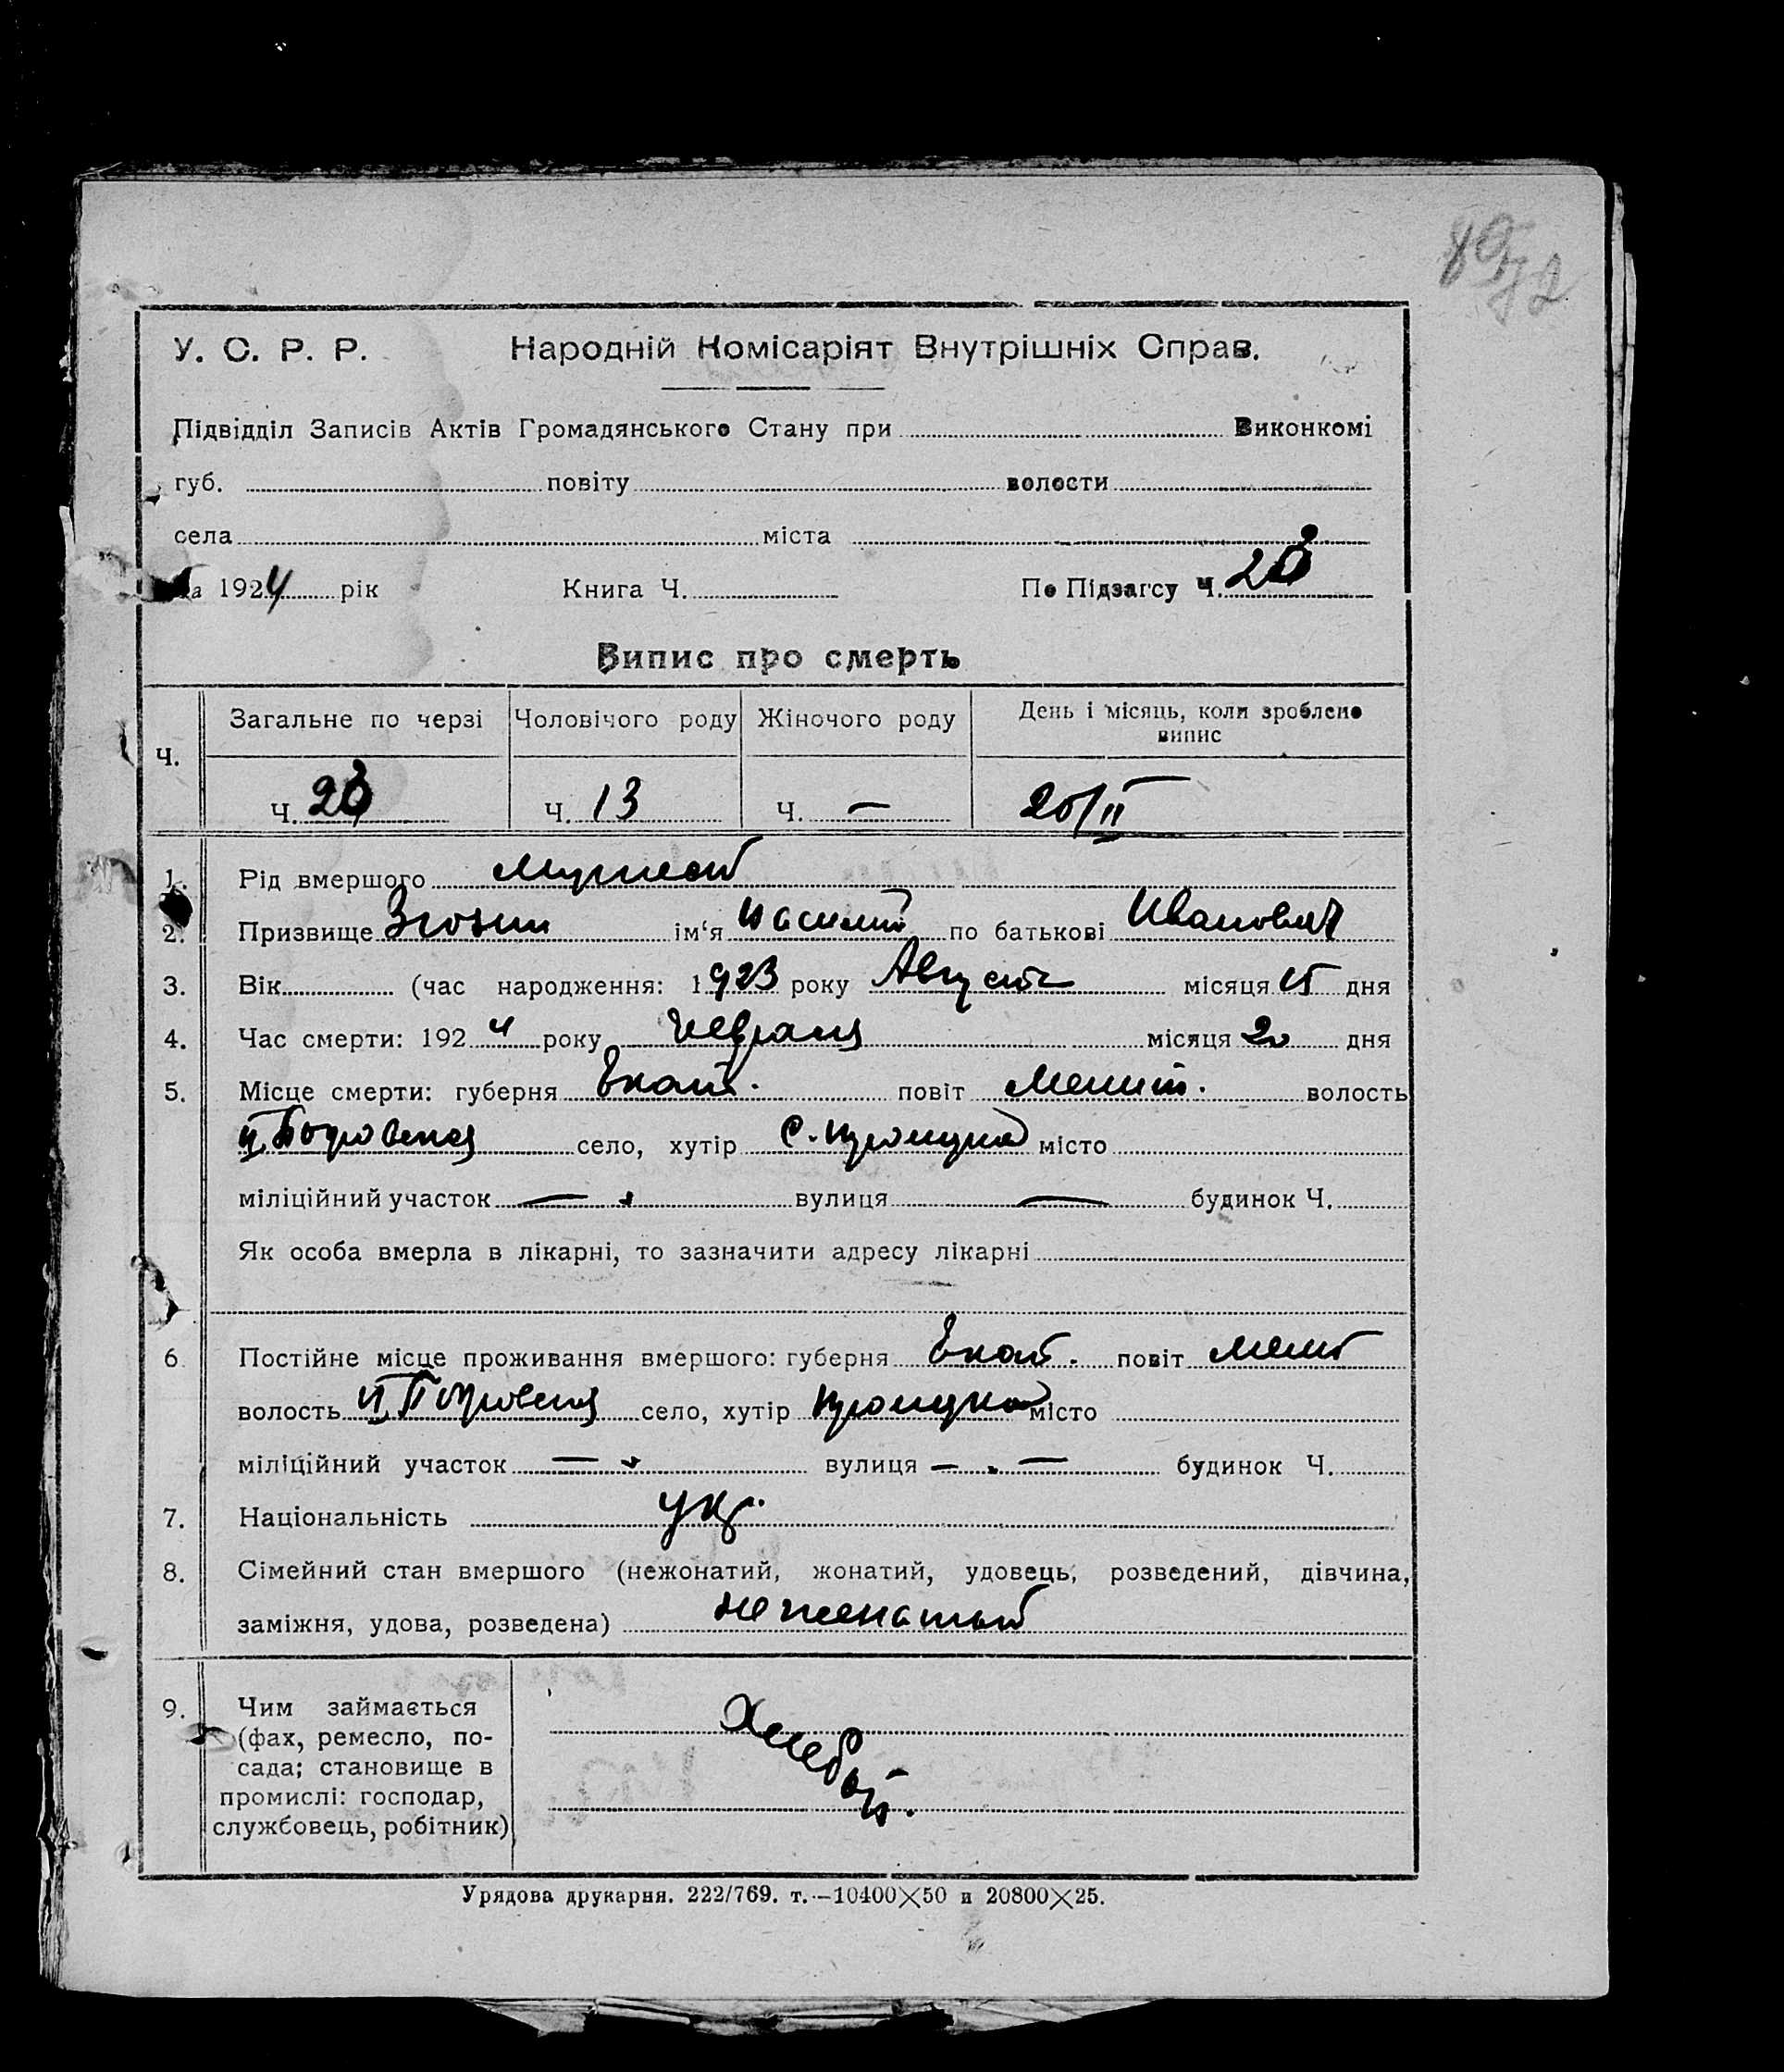 У. С. Р. Р. Народній Комісаріят Внутрішніх Справ.
Підвідділ Записів Актів Громадянського Стану при Виконкомі
губ. повіту волости
села міста
на 1924 рік Книга Ч. По Підзагсу Ч.
Випис про смерть
Ч. Загальне по черзі Чоловічого роду Жіночого роду День і місяць, коли зроблено випис
Ч. Ч. 13 Ч. — 20/II
1. Рід вмершого Мужской
2. Призвище ім'я Василий по батькові Иванович
3. Вік (час народження: 1923 року Август місяця 15 дня
4. Час смерти: 1924 року Февраля місяця 20 дня
5. Місце смерти: губерня Екат. повіт Мелит. волость
село, хутір місто
міліційний участок — вулиця — будинок Ч.
Як особа вмерла в лікарні, то зазначити адресу лікарні
6. Постійне місце проживання вмершого: губерня Екат. повіт Мелит
волость село, хутір місто
міліційний участок — вулиця — будинок Ч.
7. Національність укр.
8. Сімейний стан вмершого (нежонатий, жонатий, удовець, розведений, дівчина,
заміжня, удова, розведена) неженатый
9. Чим займається
(фах, ремесло, по-
сада; становище в
промислі: господар,
службовець, робітник)
Хлебоп.
Урядова друкарня. 222/769. т.—10400×50 и 20800×25.